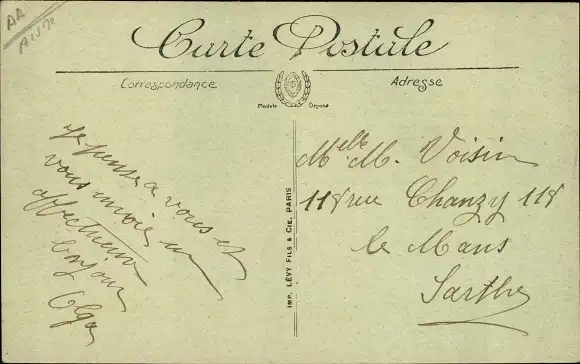 AA
Aisne
Carte Postale
Correspondance
Adresse
Modèle Déposé
IMP. LÉVY FILS & CIE. PARIS
Je pense a vous et
vous envoie un
affectueux
bonjour
Olga
Melle M. Voisin
118 rue Chanzy 118
le Mans
Sarthe